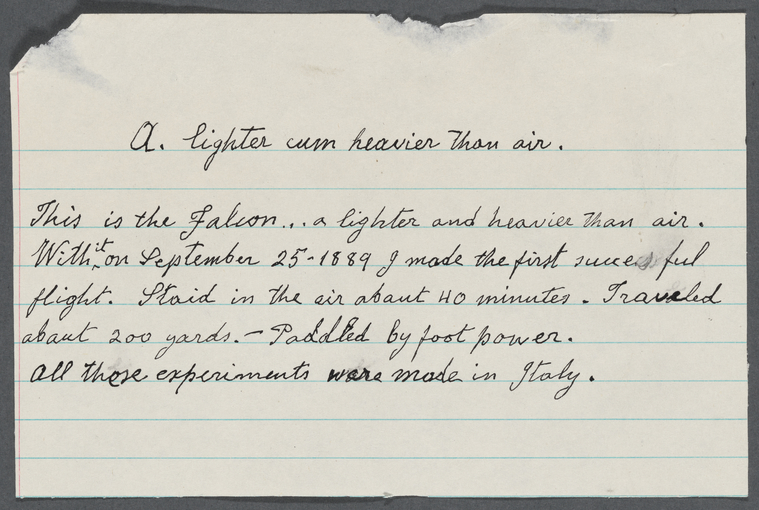 A. lighter cum heavier than air.
This is the Falcon... a lighter and heavier than air.
With it on September 25-1889 I made the first succesful
flight. Staid in the air about 40 minutes. Traveled
about 200 yards. - Paddled by foot power.
All those experiments were made in Italy.